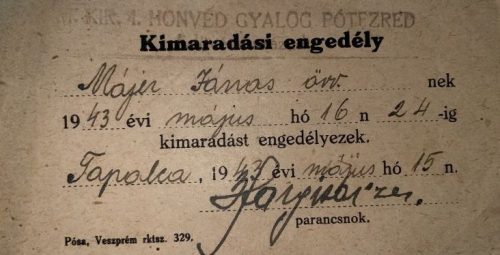 M. KIR. 4. HONVÉD GYALOG PÓTEZRED
Kimaradási engedély
Májer János őrv. nek
1943 évi május hó 16 n 24-ig
kimaradást engedélyezek.
Tapolca, 1943 évi május hó 15 n.
parancsnok.
Pósa, Veszprém rktsz. 329.